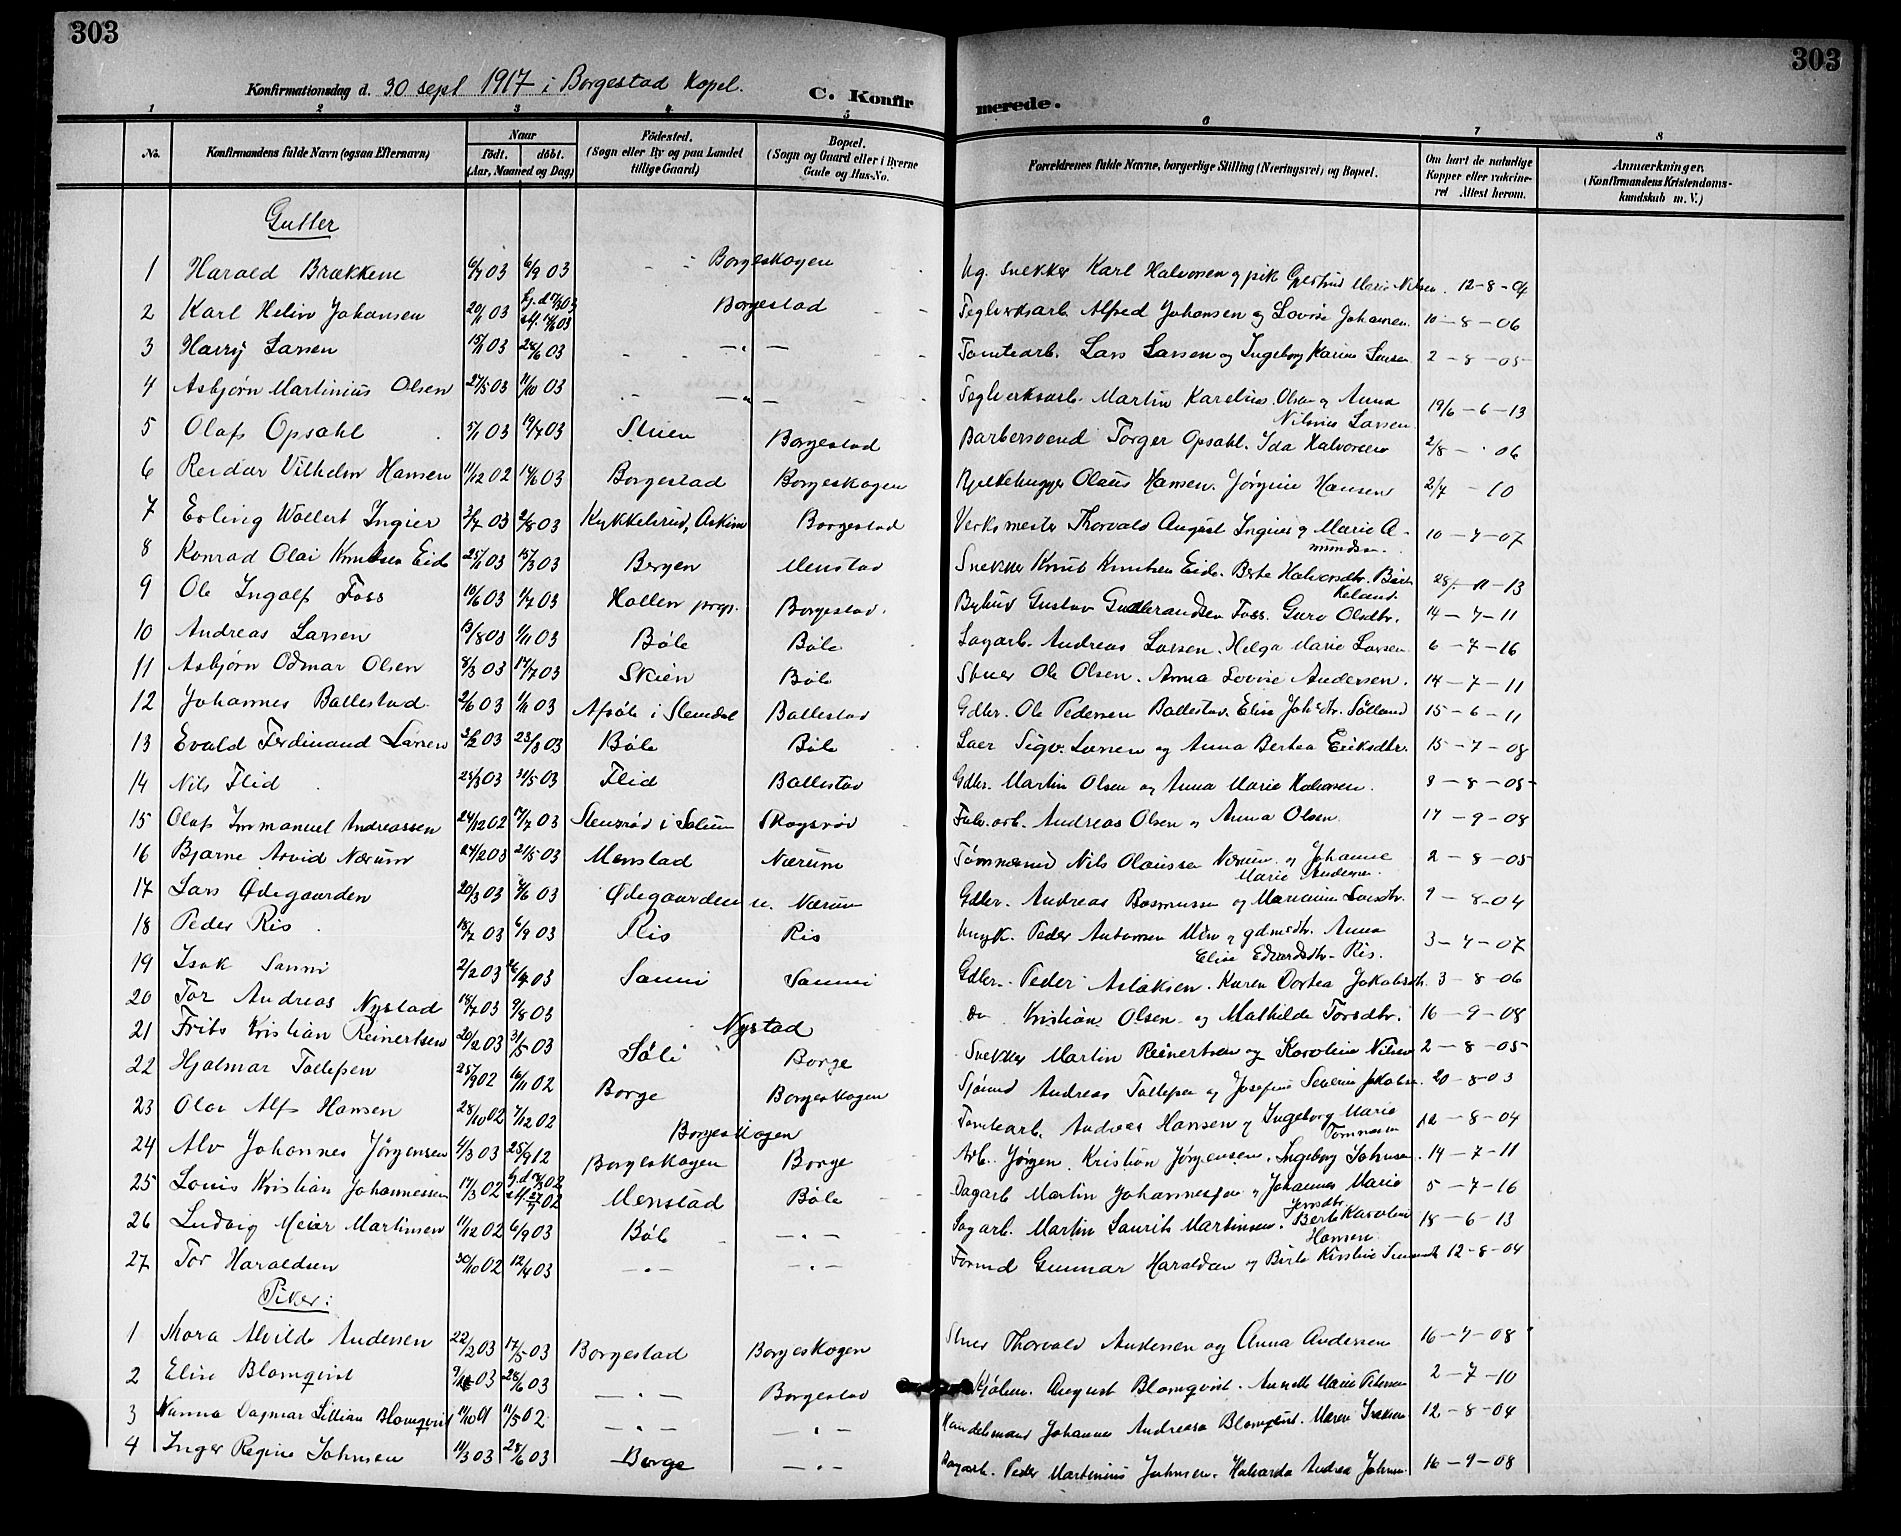 303
303
Konfirmationsdag d. 30 sept 1917 i Borgestad Kapel.
C. Konfirmerede.
1 2 3 4 5 6 7 8
No. Konfirmandens fulde Navn (ogsaa Efternavn) Naar Födt. döbt. (Aar, Maaned og Dag) Födested. (Sogn eller By og paa Landet tillige Gaard) Bopæl. (Sogn og Gaard eller i Byerne Gade og Hus-No. Forældrenes fulde Navne, borgerlige Stilling (Næringsvei) og Bopæl. Om havt de naturlige Kopper eller vakcineret Attest herom. Anmærkninger. (Konfirmandens Kristendomskundskab m. V.)
Gutter
1 Harald Brækkene 6/7 03 6/9 03 Borgeskogen Ug. snekker Karl Halvorsen og pik Gjertrud Marie Nilsen. 12-8-04
2 Karl Helmer Johansen 20/1 03 Borgestad Teglverksarb. Alfred Johansen og Lovise Johansen. 10-8-06
3 Harry Larsen 15/1 03 28/6 03 — " — Tomtearb. Lars Larsen og Ingeborg Karine Larsen 2-8-05
4 Asbjørn Martinius Olsen 27/5 03 11/10 03 — " — Teglverksarb. Martin Karelius Olsen og Anna Nilsine Larsen. 19/6-6-13
5 Olaf Opsahl 5/1 03 19/7 03 Skien Borgestad Barbersvend Torger Opsahl. Ida Halvorsen 2/8 - 06
6 Reidar Vilhelm Hansen 11/12 02 14/6 03 Borgestad Borgeskogen Bjelkehugger Olaus Hansen. Jørgine Hansen 2/7 - 10
7 Erling Wollert Ingier 3/4 03 2/8 03 Kykkelsrud, Askim Borgestad Verksmester Thorvald August Ingier og Marie Amundsen. 10-7-07
8 Konrad Olai Knutsen Eide 25/1 03 15/3 03 Bergen Menstad Snekker Knut Knutsen Eide. Berte Halvorsdtr. 28/-11-13
9 Ole Ingolf Foss 10/6 03 1/7 03 Hollen prgj. Borgestad. Bybud Gustav Gudbrandsen Foss. Guro Olsdtr. 14-7-11
10 Andreas Larsen 13/8 03 1/11 03 Bøle Bøle Sagarb. Andreas Larsen. Helga Marie Larsen 6-7-16
11 Asbjørn Odmar Olsen 8/3 03 17/7 03 Skien Bøle Stuer Ole Olsen. Anna Lovise Andersen. 14-7-11
12 Johannes Ballestad 2/6 03 1/11 03 i Slemdal Ballestad Gdbr. Ole Pedersen Ballestad. Elise Johsdtr. Sølland 15-6-11
13 Evald Ferdinand Larsen 3/2 03 23/3 03 Bøle Bøle Sigv. Larsen og Anna Bertea Eriksdtr. 15-7-08
14 Nils Flid 23/3 03 31/5 03 Flid Ballestad Gdbr. Martin Olsen og Anna Marie Halvorsen. 8-8-05
15 Olaf Immanuel Andreassen 24/12 02 17/7 03 Stensrød i Solum Skogsrød Fabr.arb. Andreas Olsen og Anna Olsen 17-9-08
16 Bjarne Arvid Nærum 24/2 03 21/5 03 Menstad Nærum Tømmermd Nils Olaussen Nærum og Johanne Marie Andersen. 2-8-05
17 Lars Ødegaarden 20/3 03 7/6 03 Ødegaarden u. Nærum Gdbr. Andreas Rasmussen og Mariane Larsdtr. 9-8-04
18 Peder Ris 18/7 03 6/9 03 Ris Ris Ungk. Peder Antonsen og gdmsdtr. Anna Elise Edvardsdtr. Ris. 3-7-07
19 Isak Sanni 2/2 03 26/4 03 Sanni Sanni Gdbr. Peder Aslaksen. Karen Dortea Jakobsdtr. 3-8-06
20 Tor Andreas Nystad 18/7 03 9/8 03 Nystad Do Kristian Olsen og Mathilde Torsdtr. 16-9-08
21 Frits Kristian Reinertsen 20/2 03 31/5 03 Søli Borge Snekker Martin Reinertsen og Karoline Nilsen 2-8-05
22 Hjalmar Tollefsen 25/9 02 16/11 02 Borge Borgeskogen Sjømd Andreas Tollefsen og Josefine Severine Jakobsen. 20-8-03
23 Olav Alf Hansen 28/10 02 7/12 02 Borgeskogen Tomtearb. Andreas Hansen og Ingeborg Marie Tommesen 12-8-04
24 Alv Johannes Jørgensen 4/3 03 25/9 12 Borgeskogen Borge Arb. Jørgen Kristian Jørgensen. Ingeborg Johnsen. 14-7-11
25 Louis Kristian Johannessen 17/3 02 Menstad Bøle Dagarb Martin Johannessen og Johannes Marie Jensdtr. 5-7-16
26 Ludvig Meier Martinsen 11/12 02 6/9 03 Bøle — " — Sagarb. Martin Laurits Martinsen. Berte Karoline Hansen. 18-6-13
27 Tor Haraldsen 30/10 02 12/4 03 — " — — " — Formd Gunnar Haraldsen og Berte Kirstine 12-8-04
Piker:
1 Thora Alvilde Andersen 22/2 03 17/5 03 Borgestad Borgeskogen Stuer Thorvald Andersen og Anna Andersen 16-9-08
2 Elise Blomqvist 28/6 03 — " — Borgestad August Blomqvist. Annette Marie Petersen 2-7-10
3 Nanna Dagmar Lillian Blomqvist 11/10 01 11/5 02 — " — — " — Handelsmand Johannes Andreas Blomqvist. Maren Isaksen 12-8-04
4 Inger Regine Johnsen 11/3 03 28/6 03 Borge — " — Dagarb. Peder Martinius Johnsen. Halvarda Andrea Johnsen 16-9-08